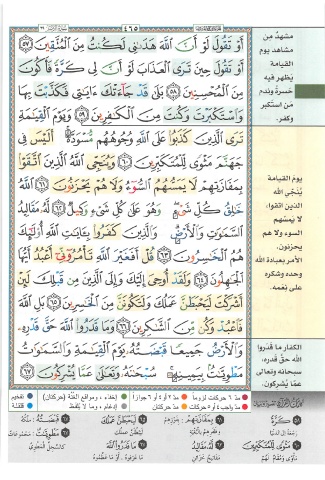 ٤٦٥
أَوْ تَقُولَ لَوْ أَنَّ ٱللَّهَ هَدَىٰنِى لَكُنتُ مِنَ ٱلْمُتَّقِينَ ٥٧
أَوْ تَقُولَ حِينَ تَرَى ٱلْعَذَابَ لَوْ أَنَّ لِى كَرَّةً فَأَكُونَ
مِنَ ٱلْمُحْسِنِينَ ٥٨ بَلَىٰ قَدْ جَآءَتْكَ ءَايَٰتِى فَكَذَّبْتَ بِهَا
وَٱسْتَكْبَرْتَ وَكُنتَ مِنَ ٱلْكَٰفِرِينَ ٥٩ وَيَوْمَ ٱلْقِيَٰمَةِ
تَرَى ٱلَّذِينَ كَذَبُوا۟ عَلَى ٱللَّهِ وُجُوهُهُم مُّسْوَدَّةٌ أَلَيْسَ فِى
جَهَنَّمَ مَثْوًى لِّلْمُتَكَبِّرِينَ ٦٠ وَيُنَجِّى ٱللَّهُ ٱلَّذِينَ ٱتَّقَوْا۟
بِمَفَازَتِهِمْ لَا يَمَسُّهُمُ ٱلسُّوٓءُ وَلَا هُمْ يَحْزَنُونَ ٦١ ٱللَّهُ
خَٰلِقُ كُلِّ شَىْءٍ وَهُوَ عَلَىٰ كُلِّ شَىْءٍ وَكِيلٌ ٦٢ لَّهُۥ مَقَالِيدُ
ٱلسَّمَٰوَٰتِ وَٱلْأَرْضِ وَٱلَّذِينَ كَفَرُوا۟ بِـَٔايَٰتِ ٱللَّهِ أُو۟لَٰٓئِكَ
هُمُ ٱلْخَٰسِرُونَ ٦٣ قُلْ أَفَغَيْرَ ٱللَّهِ تَأْمُرُوٓنِّىٓ أَعْبُدُ أَيُّهَا
ٱلْجَٰهِلُونَ ٦٤ وَلَقَدْ أُوحِىَ إِلَيْكَ وَإِلَى ٱلَّذِينَ مِن قَبْلِكَ لَئِنْ
أَشْرَكْتَ لَيَحْبَطَنَّ عَمَلُكَ وَلَتَكُونَنَّ مِنَ ٱلْخَٰسِرِينَ ٦٥ بَلِ ٱللَّهَ
فَٱعْبُدْ وَكُن مِّنَ ٱلشَّٰكِرِينَ ٦٦ وَمَا قَدَرُوا۟ ٱللَّهَ حَقَّ قَدْرِهِۦ
وَٱلْأَرْضُ جَمِيعًا قَبْضَتُهُۥ يَوْمَ ٱلْقِيَٰمَةِ وَٱلسَّمَٰوَٰتُ
مَطْوِيَّٰتٌۢ بِيَمِينِهِۦ سُبْحَٰنَهُۥ وَتَعَٰلَىٰ عَمَّا يُشْرِكُونَ ٦٧
مشهدٌ من
مشاهد يوم
القيامة
يظهر فيه
حسرة وندم
من استكبر
وكفر.
يوم القيامة
يُنجّي الله
الذين اتقوا،
لا يمسهم
السوء ولا هم
يحزنون،
الأمر بعبادة الله
وحده وشكره
على نعمه.
الكفار ما قدروا
الله حق قدره،
سبحانه وتعالى
عمّا يشركون.
مد ٦ حركات لزوماً
مد ٢ أو ٤ أو ٦ جوازاً
إخفاء، ومواقع الغُنَّة (حركتان)
تفخيم
مد واجب ٤ أو ٥ حركات
مد حركتان
إدغام، وما لا يُلفظ
قلقلة